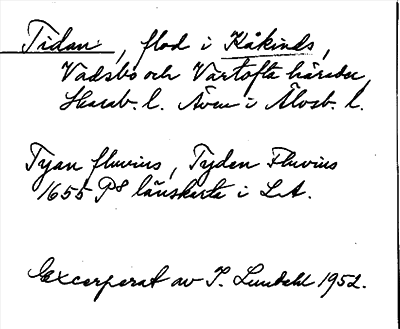 Tidan, flod i Kåkinds,
Vadsbo och Vartofta härader,
Skarab. l. Även i Älvsb. l.
Tyan fluvius, Tyden Fluvius
1655 PS länskarta i LA.
Excerperat av I. Lundahl 1952.